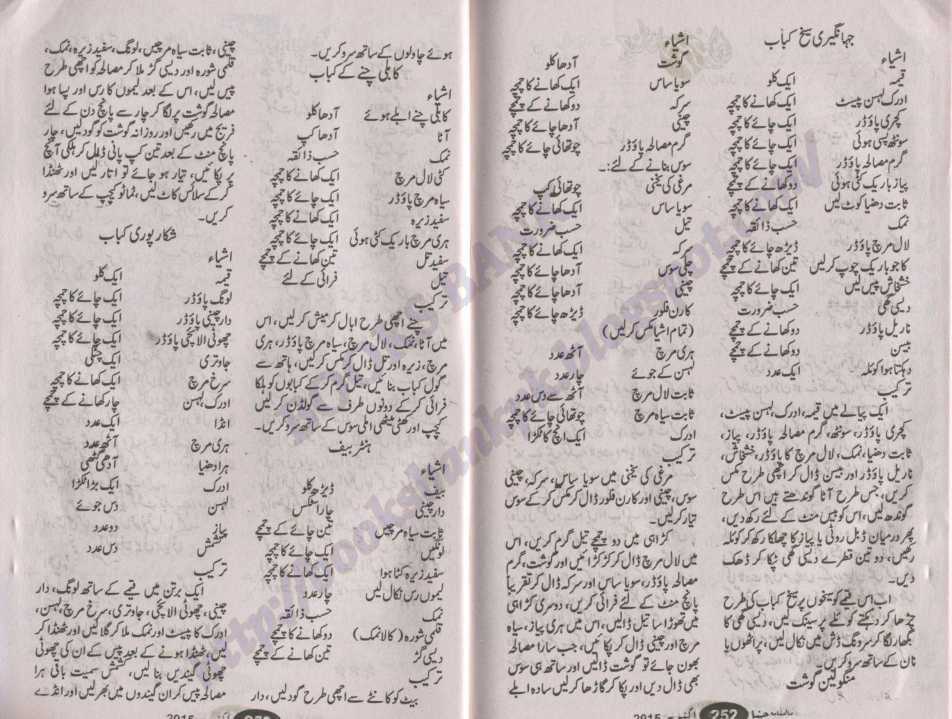 جہانگیری سیخ کباب
اشیاء
قیمہ ایک کلو
ادرک لہسن پیسٹ ایک کھانے کا چمچہ
کچری پاؤڈر ایک چائے کا چمچہ
سونٹھ پسی ہوئی ایک چائے کا چمچہ
گرم مصالحہ پاؤڈر ایک چائے کا چمچہ
پیاز باریک کٹی ہوئی دو کھانے کے چمچے
ثابت دھنیا کوٹ لیں ایک کھانے کا چمچہ
نمک حسب ذائقہ
لال مرچ پاؤڈر ڈیڑھ چائے کا چمچہ
کاجو باریک چوپ کرلیں تین کھانے کے چمچے
خشخاش پیس لیں ایک کھانے کا چمچہ
دیسی گھی حسب ضرورت
ناریل پاؤڈر دو کھانے کے چمچے
بیسن دو کھانے کے چمچے
دہکتا ہوا کوئلہ ایک عدد
ترکیب
ایک پیالے میں قیمہ، ادرک لہسن پیسٹ،
کچری پاؤڈر، سونٹھ، گرم مصالحہ پاؤڈر، پیاز،
ثابت دھنیا، نمک، لال مرچ کا پاؤڈر، خشخاش،
ناریل پاؤڈر اور بیسن ڈال کر اچھی طرح مکس
کریں، جس طرح آٹا گوندھتے ہیں اس طرح
گوندھ لیں، اس کو بیس منٹ کے لئے رکھ دیں،
پھر درمیان ڈبل روٹی یا پیاز کا چھلکا رکھ کر کوئلہ
رکھیں، دو تین قطرے دیسی گھی ٹپکا کر ڈھک
دیں۔
اب اس قیمے کو سیخوں پر سیخ کباب کی طرح
چڑھا کر دہکتے کوئلے پر سینک لیں، دیسی گھی کا
بگھار لگا کر سرونگ ڈش میں نکال لیں، پراٹھوں یا
نان کے ساتھ سرو کریں۔
منگولین گوشت
اشیاء
گوشت آدھا کلو
سویا ساس ایک کھانے کا چمچہ
سرکہ دو کھانے کے چمچے
چینی آدھا چائے کا چمچہ
گرم مصالحہ پاؤڈر چوتھائی چائے کا چمچہ
سوس بنانے کے لئے:۔
مرغی کی یخنی چوتھائی کپ
سویا ساس ایک کھانے کا چمچہ
تیل حسب ضرورت
سرکہ ایک کھانے کا چمچہ
چلی سوس آدھا چائے کا چمچہ
چینی آدھا چائے کا چمچہ
کارن فلور ڈیڑھ چائے کا چمچہ
(تمام اشیا مکس کرلیں)
ہری مرچ آٹھ عدد
لہسن کے جوئے چار عدد
ثابت لال مرچ آٹھ سے دس عدد
ثابت سیاہ مرچ چوتھائی چائے کا چمچہ
ادرک ایک انچ کا ٹکڑا
ترکیب
مرغی کی یخنی میں سویا ساس، سرکہ، چینی
سوس، چینی اور کارن فلور ڈال کر مکس کر کے سوس
تیار کریں۔
کڑاہی میں دو چمچے تیل گرم کریں، اس
میں لال مرچ ڈال کر کڑکڑائیں اور گوشت، گرم
مصالحہ پاؤڈر، سویا ساس اور سرکہ ڈال کر تقریباً
پانچ منٹ کے لئے فرائی کریں، دوسری کڑاہی
میں تھوڑا سا تیل ڈالیں، اس میں ہری پیاز، سیاہ
مرچ اور چینی ڈال کر پکائیں، جب سارا مصالحہ
بھون جائے تو گوشت ڈالیں اور ساتھ ہی سوس
بھی ڈال دیں اور پکا کر گاڑھا کرلیں سادہ ابلے
ماہنامہ حنا 252 اگست 2015
ہوئے چاولوں کے ساتھ سرو کریں۔
کابلی چنے کے کباب
اشیاء
کابلی چنے ابلے ہوئے آدھا کلو
آٹا آدھا کپ
نمک حسب ذائقہ
کٹی لال مرچ ایک کھانے کا چمچہ
سیاہ مرچ پاؤڈر ایک چائے کا چمچہ
سفید زیرہ ایک کھانے کا چمچہ
ہری مرچ باریک کٹی ہوئی ایک چائے کا چمچہ
سفید تل تین کھانے کے چمچے
تیل فرائی کے لئے
ترکیب
چنے اچھی طرح ابال کر میش کرلیں، اس
میں آٹا، نمک، لال مرچ، سیاہ مرچ پاؤڈر، ہری
مرچ، زیرہ اور تل ڈال کر مکس کرلیں، ہاتھ سے
گول کباب بنائیں، تیل گرم کر کے کبابوں کو ہلکا
فرائی کر کے دونوں طرف سے گولڈن کرلیں
کیچپ اور کھٹی میٹھی املی سوس کے ساتھ سرو کریں۔
ہنٹر بیف
اشیاء
بیف ڈیڑھ کلو
دارچینی چار اسٹکس
ثابت سیاہ مرچیں تین کھانے کے چمچے
لونگیں ایک چائے کا چمچہ
سفید زیرہ کٹا ہوا ایک کھانے کا چمچہ
لیموں رس نکال لیں چار عدد
نمک حسب ذائقہ
قلمی شورہ (کالا نمک) دو کھانے کا چمچے
دیسی گڑ تین کھانے کے چمچے
ترکیب
بیف کو کانٹے سے اچھی طرح گود لیں، دار
چینی، ثابت سیاہ مرچیں، لونگ، سفید زیرہ، نمک،
قلمی شورہ اور دیسی گڑ ملا کر مصالحہ کو اچھی طرح
پیس لیں، اس کے بعد لیموں کا رس اور پسا ہوا
مصالحہ گوشت پر لگا کر چار سے پانچ دن کے لئے
فریج میں رکھیں اور روزانہ گوشت کو گودیں، چار
پانچ منٹ کے بعد تین کپ پانی ڈال کر ہلکی آنچ
پر پکائیں، تیار ہو جائے تو اتار لیں اور ٹھنڈا
کر کے سلائس کاٹ لیں، ٹماٹو کیچپ کے ساتھ سرو
کریں۔
شکارپوری کباب
اشیاء
قیمہ ایک کلو
لونگ پاؤڈر ایک چائے کا چمچہ
دارچینی پاؤڈر ایک چائے کا چمچہ
چھوٹی الائچی پاؤڈر ایک چائے کا چمچہ
جاوتری ایک چٹکی
سرخ مرچ ایک کھانے کا چمچہ
ادرک لہسن چار کھانے کے چمچے
انڈا ایک عدد
ہری مرچ آٹھ عدد
ہرا دھنیا آدھی گٹھی
ادرک ایک بڑا ٹکڑا
لہسن دس جوئے
پیاز دو عدد
کشمش دس عدد
ترکیب
ایک برتن میں قیمے کے ساتھ لونگ، دار
چینی، چھوٹی الائچی، جاوتری، سرخ مرچ، لہسن،
ادرک کا پیسٹ اور نمک ملا کر گلا لیں اور ٹھنڈا کر
لیں، ٹھنڈا ہونے کے بعد پیس کے ان کی چھوٹی
چھوٹی گیندیں بنا لیں، کشمش سمیت باقی ہرا
مصالحہ پیس کر ان گیندوں میں بھر لیں اور انڈے
2015